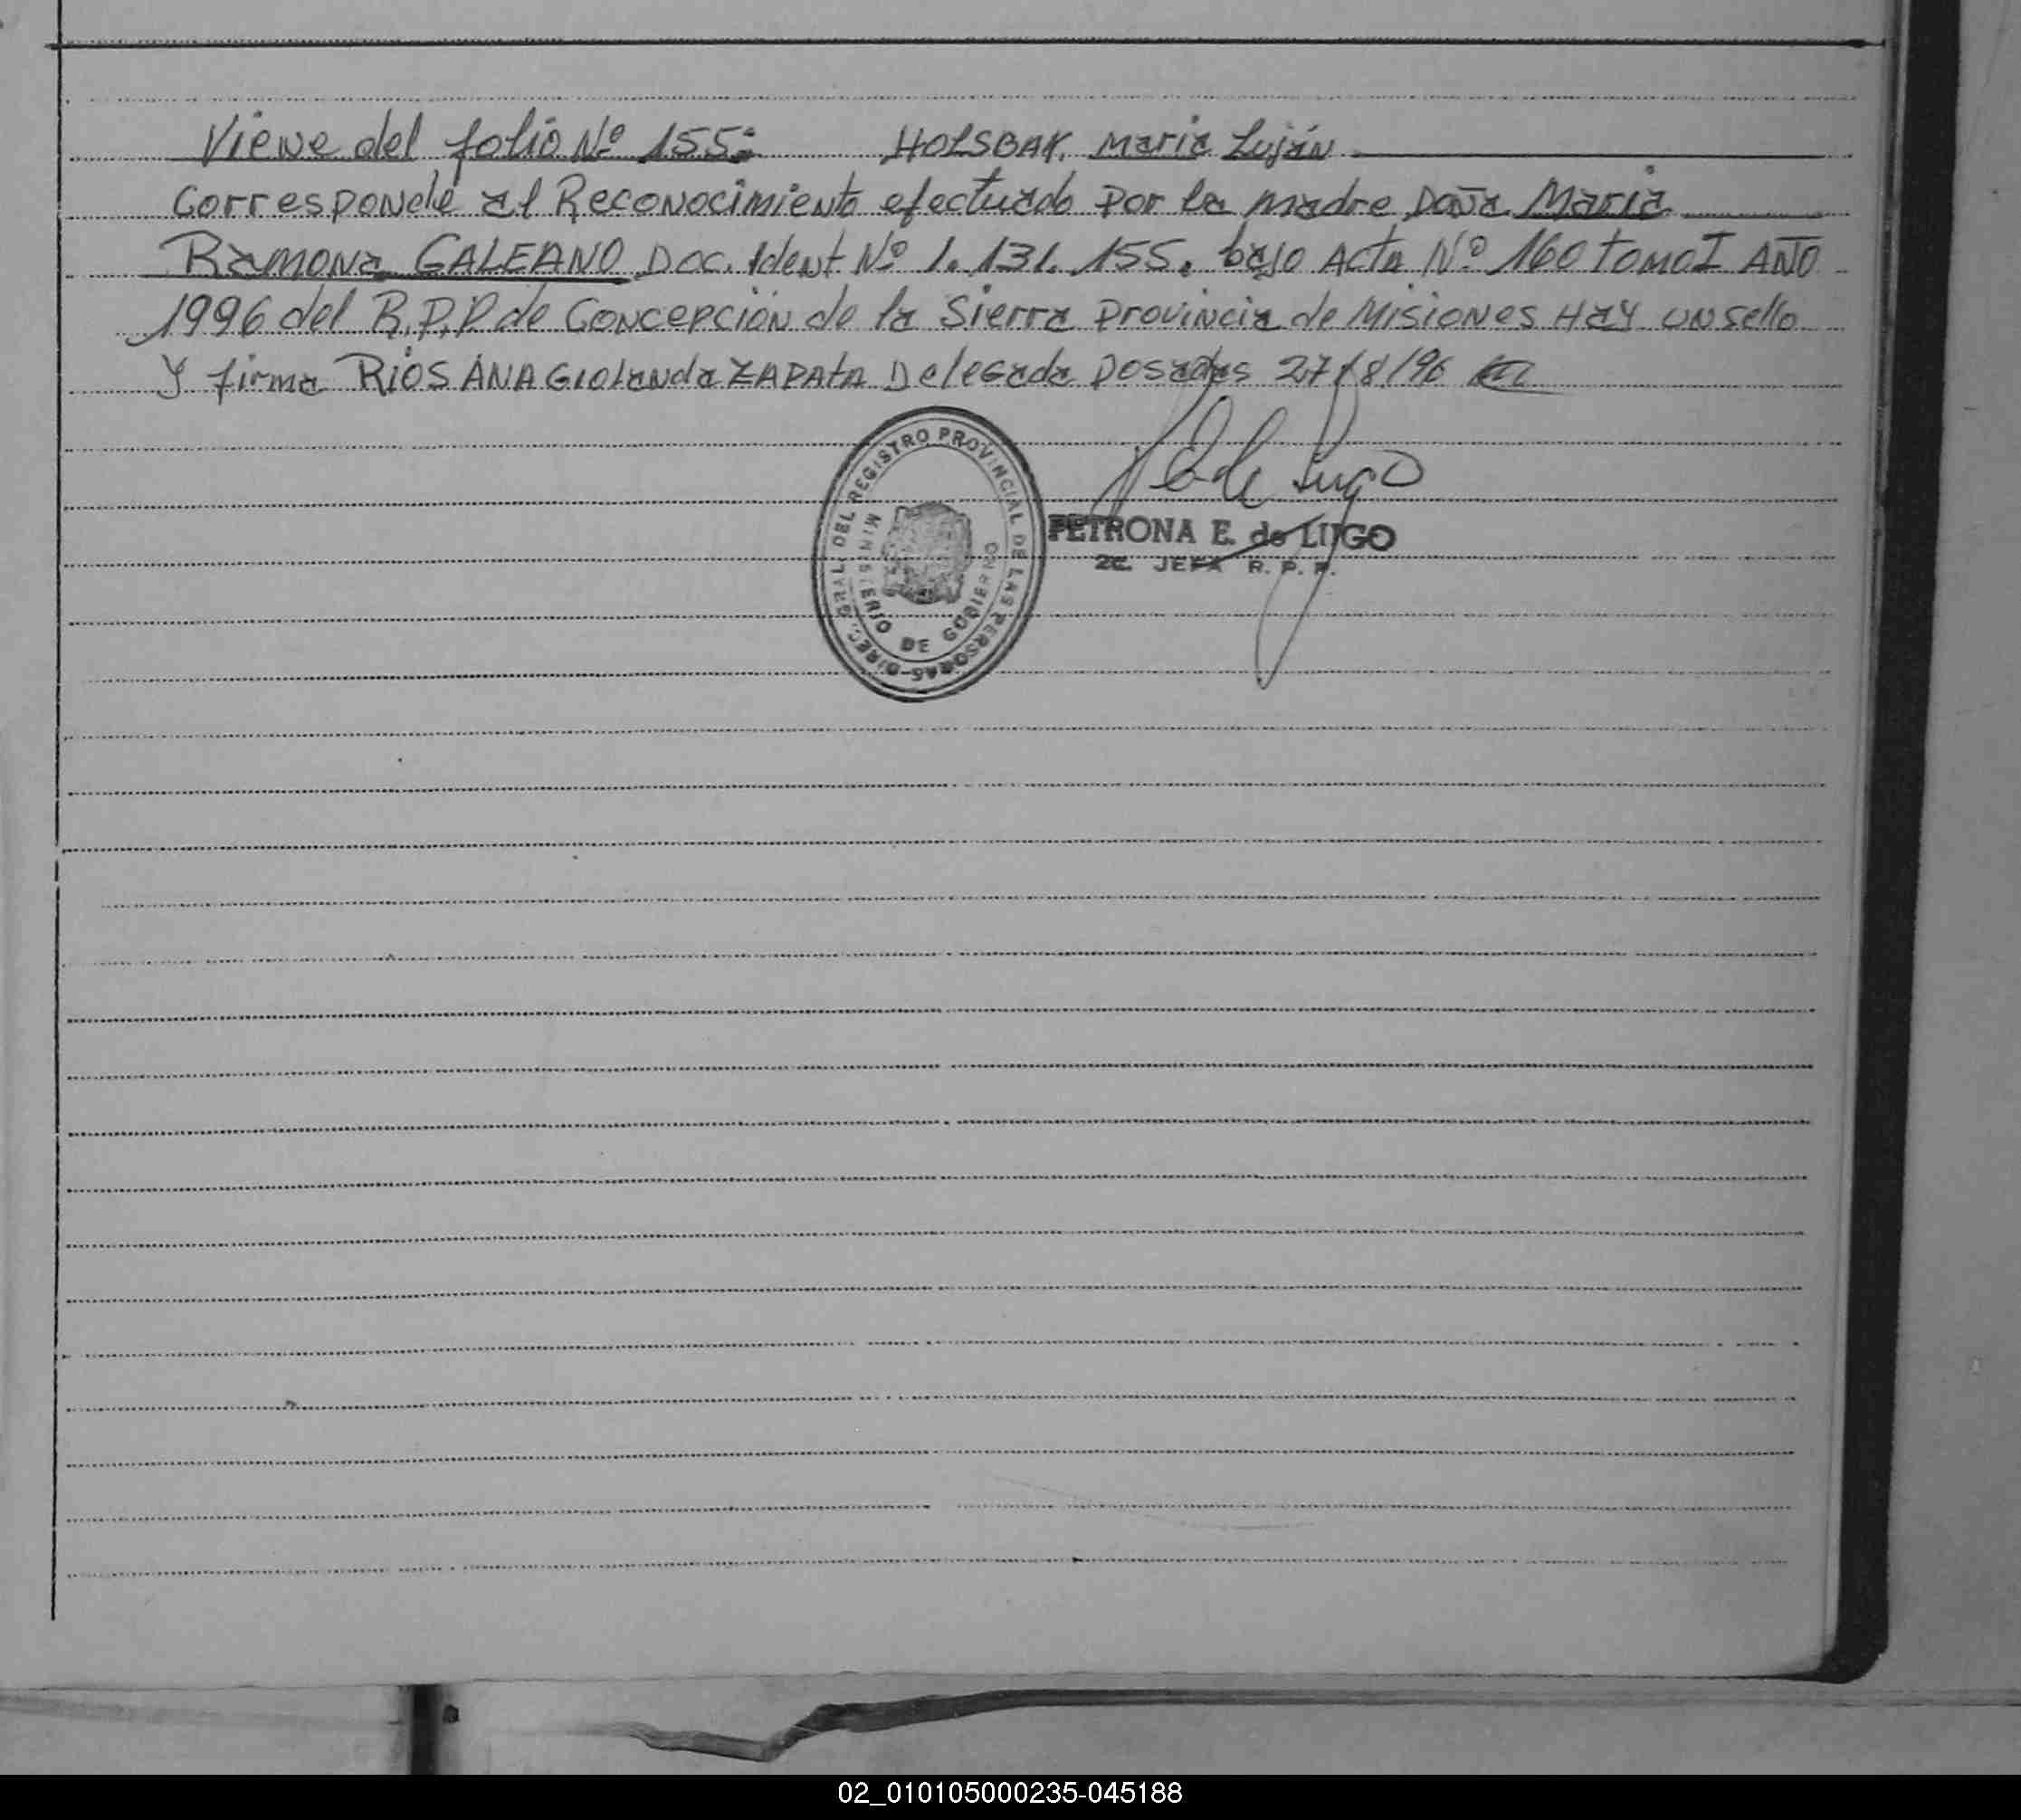 Viene del folio Nº 155: HOLSBAK, Maria Luján
Corresponde al Reconocimiento efectuado por la madre Doña Maria
Ramona GALEANO Doc. Ident Nº 1.131.155. bajo Acta Nº 160 tomo I AÑO
1996 del R.P.P de Concepción de la Sierra Provincia de Misiones Hay un sello
Y firma RIOS ANA Giolanda ZAPATA Delegada Posadas 27/8/96
DIREC. GRAL. DEL REGISTRO PROVINCIAL DE LAS PERSONAS
MINISTERIO DE GOBIERNO
de Lugo
PETRONA E. de LUGO
JEFA R. P. P.
02_010105000235-045188